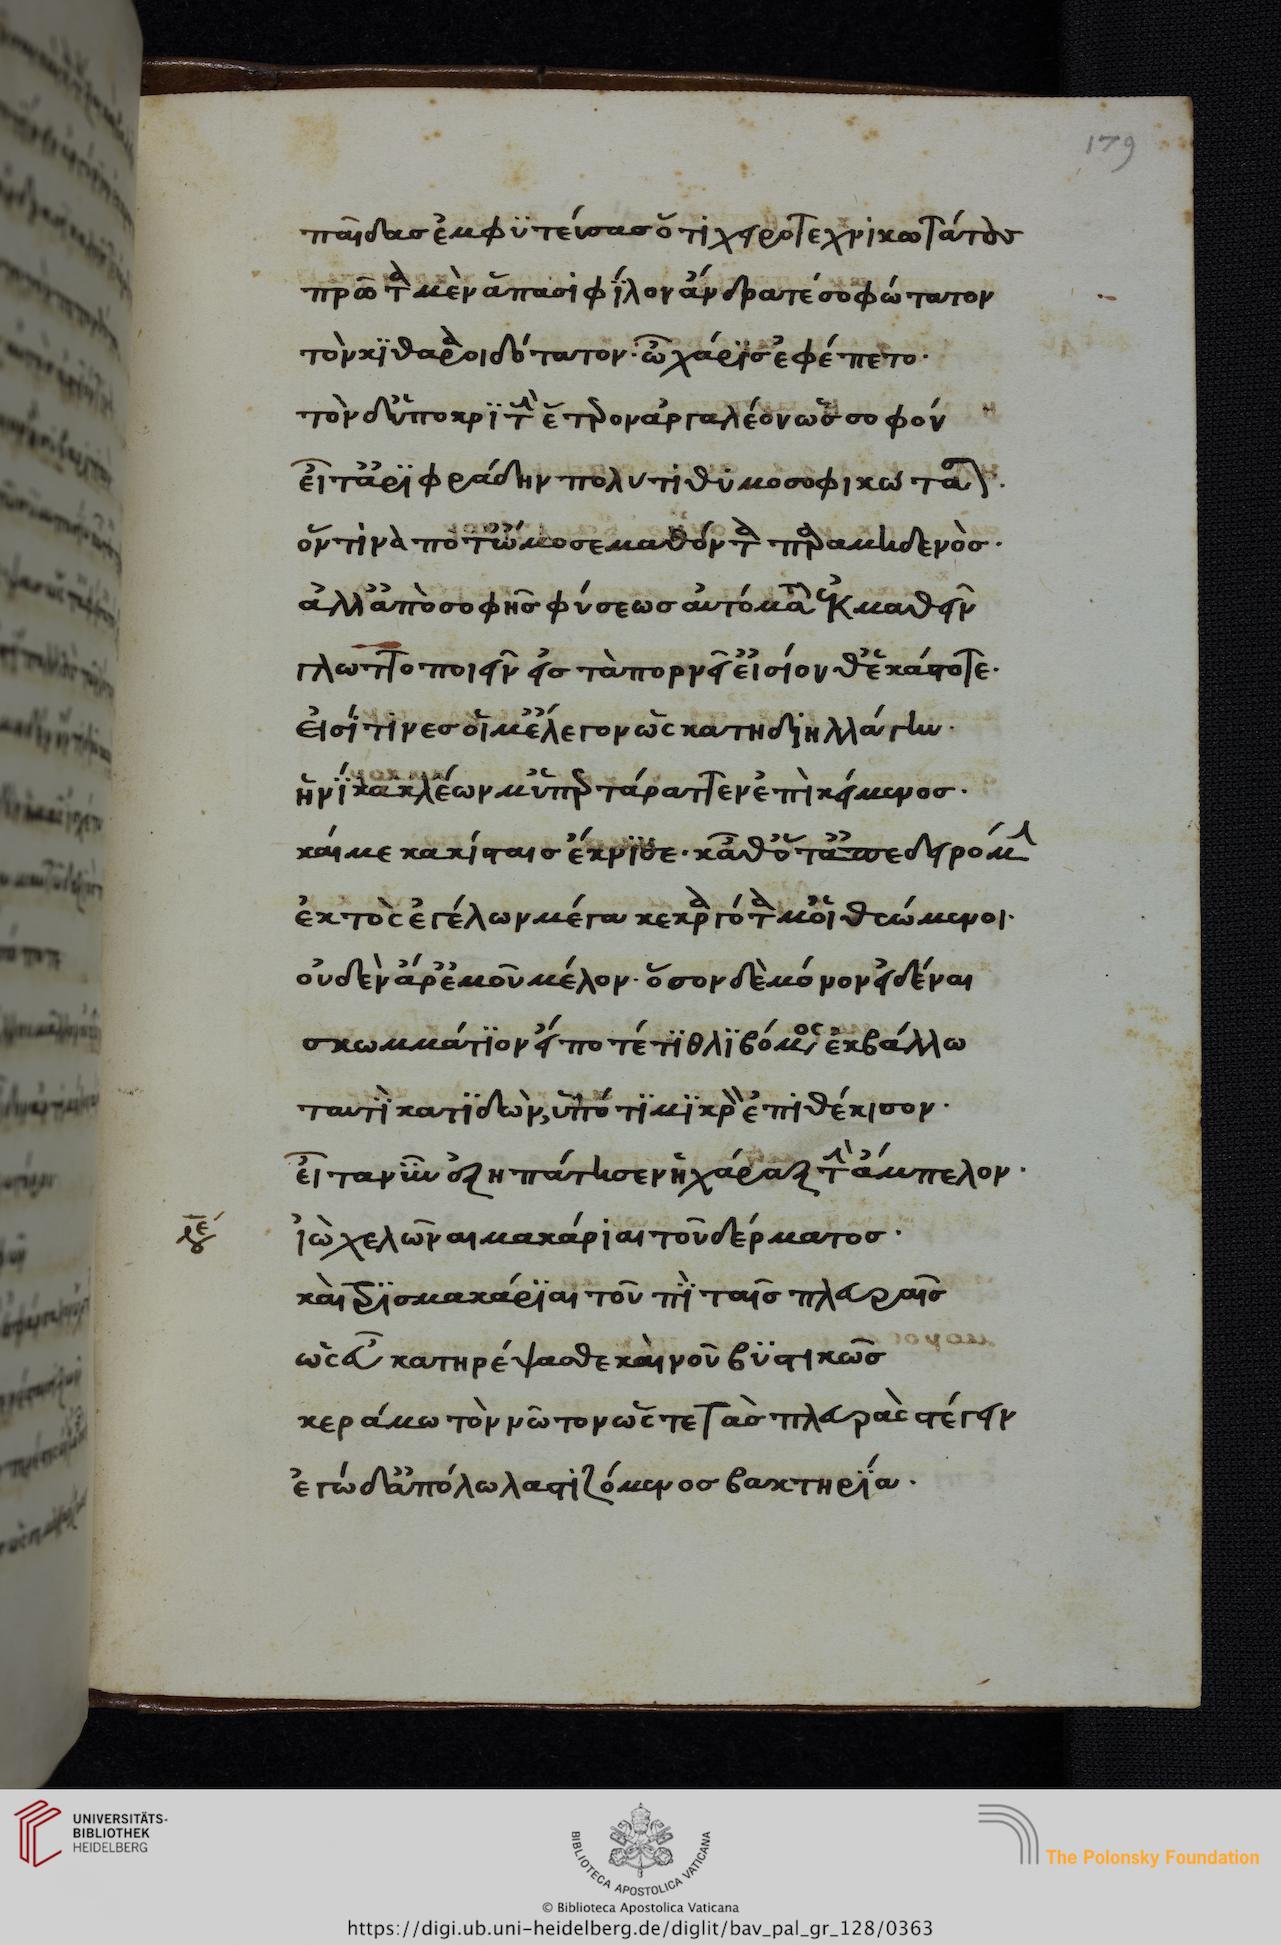 179
παῖδας ἐμφϋτεύσας ὅτι χειροτεχνικωτάτους
πρῶτα μὲν ἅπασι φίλον ἄνδρα τέ σοφώτατον
τὸν κϊθαραοιδότατον· ὧ χάρϊς ἐφέπετο·
τὸν δ' ὑποκρϊτὴν ἕτερον ἀργαλέον ὡς σοφόν
εἶτ' ἀρϊφράδην πολύ τι θυμοσοφικώτατον·
ὅν τινὰ ποτ' ὤμοσε μαθόντα παρα μηδενὸς·
ἀλλ' ἀπὸ σοφῆς φύσεως αὐτόματον ἐκμαθεῖν
γλωττοποιεῖν εἰς τὰ πορνεῖ' εἰσίονθ' ἑκάστοτε·
εἰσί τινες οἵ μ' ἔλεγον ὡς κατηδιηλλάγην·
ἡνίκα κλέων μ' ὑπερτάραττεν ἐπικείμενος·
καί με κακίσταις ἔκνϊσε· κᾆθ' ὅτ' ἀπεδειρόμην
ἐκτὸς ἐγέλων μέγα κεκραγότα μ' οἱ θεώμενοι·
οὐδὲν ἄρ' ἐμοῦ μέλον· ὅσον δὲ μόνον εἰδέναι
σκωμμάτϊον εἴ ποτέ τϊ θλϊβόμενος ἐκβάλλω
ταυτὶ κατϊδὼν, ὑπό τϊ μϊκρὸν ἐπιθέκισον·
εἶτα νῦν ἐξηπάτησεν ἡ χάραξ τὴν ἄμπελον·
ἰὼ χελῶναι μακάριαι τοῦ δέρματος·
καὶ τρϊσμακάρϊαι τοῦ 'πὶ ταῖς πλευραῖς
ὡς εὖ κατηρέψασθε καὶ νουβϋστικῶς
κεράμω τὸν νῶτον ὥστε τὰς πλευρὰς στέγειν
ἐγώ δ' ἀπόλωλα στιζόμενος βακτηρϊά·
UNIVERSITÄTS-
BIBLIOTHEK
HEIDELBERG
BIBLIOTECA APOSTOLICA VATICANA
The Polonsky Foundation
© Biblioteca Apostolica Vaticana
https://digi.ub.uni-heidelberg.de/diglit/bav_pal_gr_128/0363